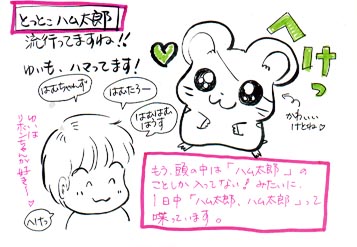 とっとこハム太郎
流行ってますね!!
ゆいも、ハマってます!
はむちゃんず
はむたろー
はむはむ
はうす
ゆいは
リボンちゃんが好きー♡
へけっ
へけっ
かわいい
けどね♡
もう、頭の中は「ハム太郎」の
ことしか入ってない!みたいに、
1日中「ハム太郎、ハム太郎」って
喋っています。